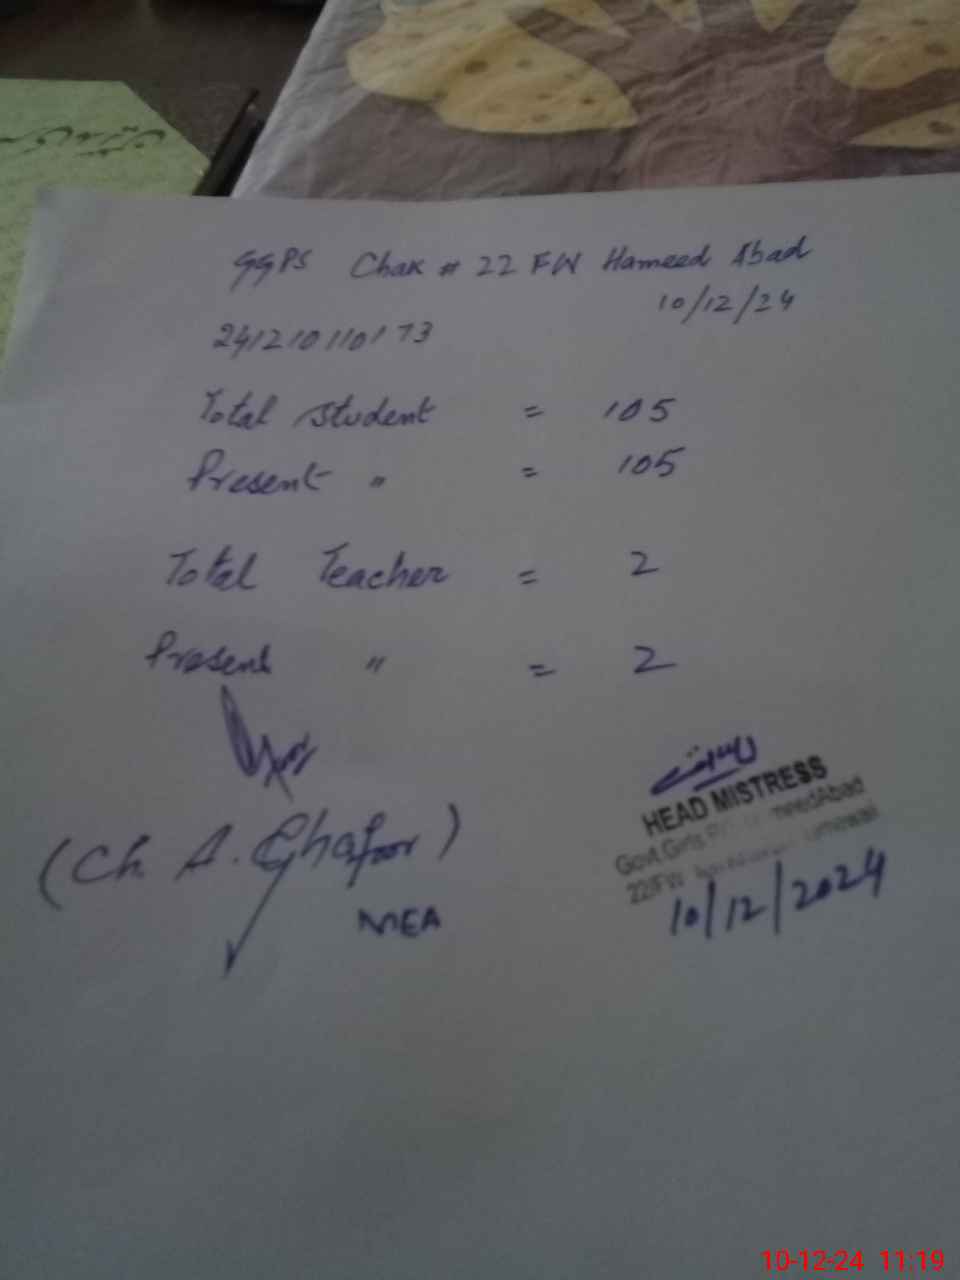 GGPS Chak # 22 FW Hameed Abad
10/12/24
241210110173
Total student = 105
Present " = 105
Total Teacher = 2
Present " = 2
(Ch. A. Ghafoor)
MEA
HEAD MISTRESS
Govt.Girls
22/FW
10/12/2024
10-12-24 11:19